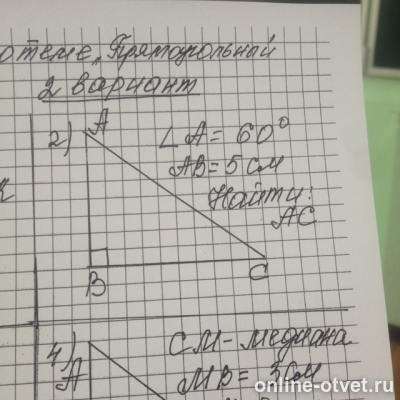 о теме „Прямоугольный
2 вариант
2) A
∠A = 60°
AB = 5 см
Найти:
AC
B C
4) CM - медиана
A MB = 3 см
online-otvet.ru